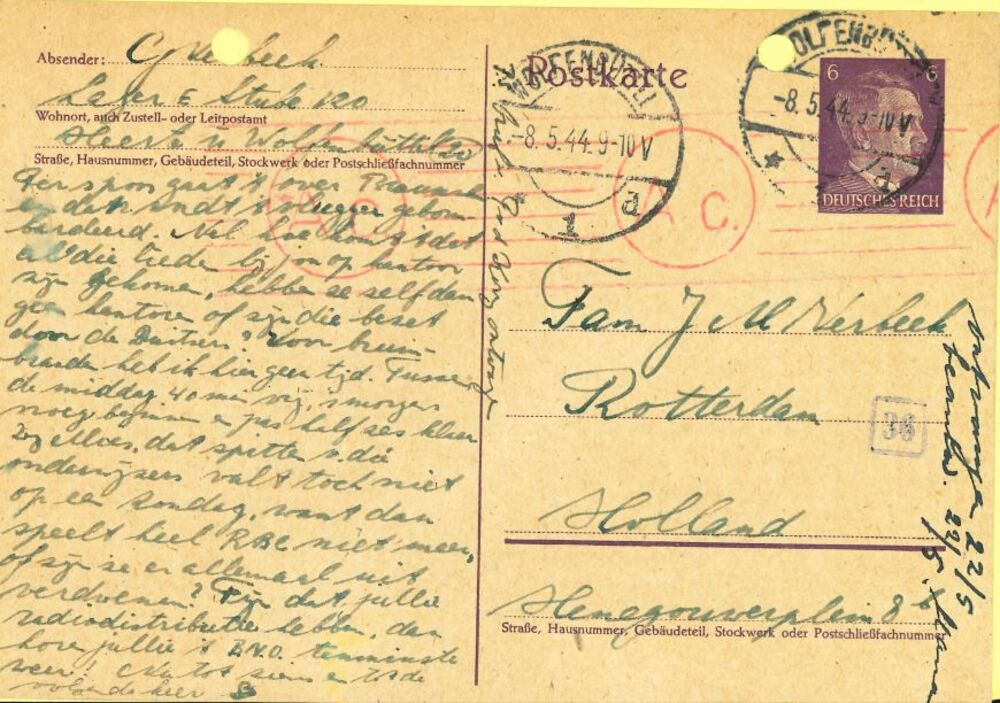 Absender:
Lager E Stube 120
Wohnort, auch Zustell- oder Leitpostamt
Heerte ü Wolfenbüttel
Straße, Hausnummer, Gebäudeteil, Stockwerk oder Postschließfachnummer
spoor gaat 't over
en dat
bardeerd. hoe komt 't dat
al die lieden bij jou op kantoor
zijn gekomen, hebben ze zelf dan
geen kantoren of zijn die bezet
door de Duitsers? Voor bruin-
branden heb ik hier geen tijd. Tussen
de middag 40 min vrij, 's morgens
vroeg beginnen en pas half zes klaar
Zeg Moes, dat spitten v. die
onderwijzers valt toch niet
op een Zondag, want dan
speelt heel RBC niet meer,
of zijn ze er allemaal uit
verdwenen? Fijn dat jullie
radiodistributie hebben, dan
horen jullie 't B.N.O. tenminste
weer! tot ziens en tot de
volgende keer
Postkarte
WOLFENBÜTTEL
-8.5.44.9-10V
1 a
WOLFENBÜTTEL
-8.5.44.9-10V
a
6 6
DEUTSCHES REICH
A C.
A C.
Fam J M Verbeek
Rotterdam
38
Holland
Henegouwerplein 8b
Straße, Hausnummer, Gebäudeteil, Stockwerk oder Postschließfachnummer
ontvangen 22/5
22/5